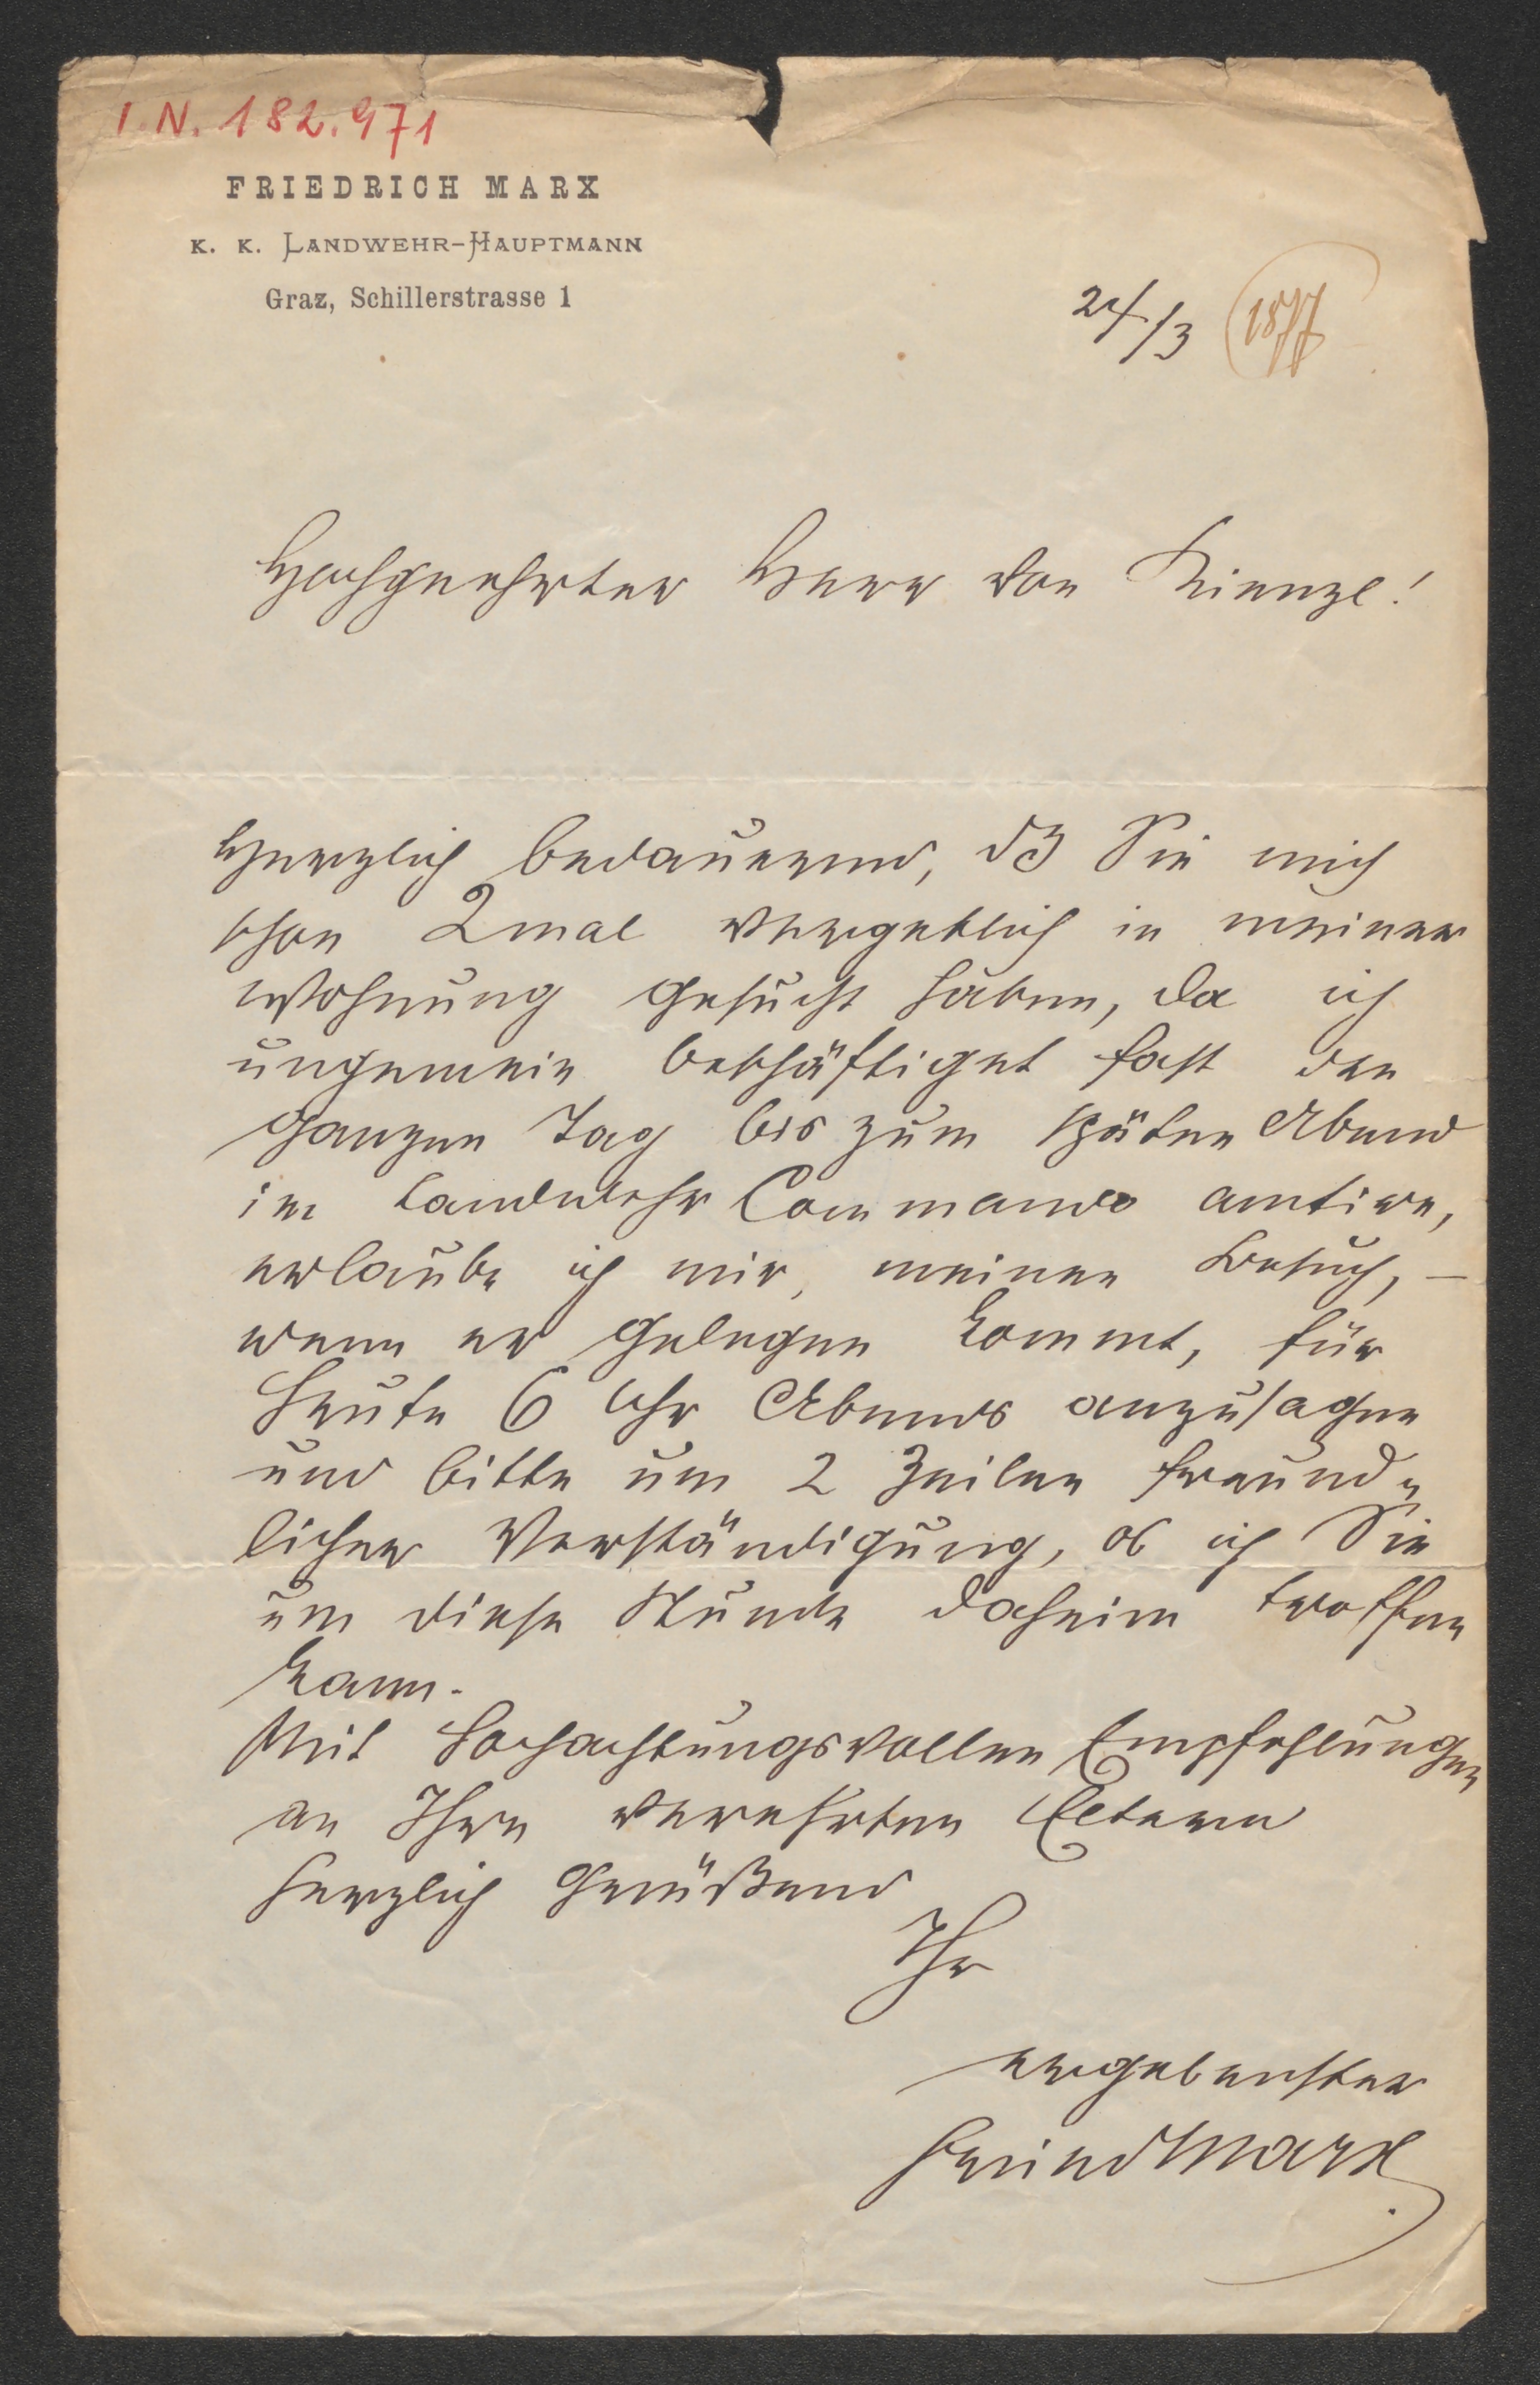 I.N. 182.971
FRIEDRICH MARX
K. K. LANDWEHR-HAUPTMANN
Graz, Schillerstrasse 1
24/3 (1877
Hochgeehrter Herr von Kienzl!
Herzlich bedauernd, dß Sie mich
schon 2mal vergeblich in meiner
Wohnung gesucht haben, da ich
ungemein beschäftiget fast den
ganzen Tag bis zum späten Abend
im Landwehr Commando amtire,
erlaube ich mir, meinen Besuch, –
wenn er gelegen kommt, für
heute 6 Uhr Abends anzusagen
und bitte um 2 Zeilen freund„
licher Verständigung, ob ich Sie
um diese Stunde daheim treffen
kann.
Mit hochachtungsvollen Empfehlungen
an Ihre verehrten Eltern
herzlich grüßend
Ihr
ergebenster
FriedMarx